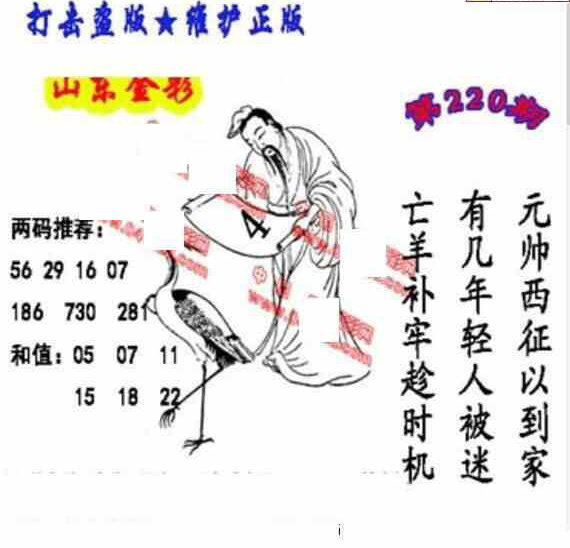 打击盗版★维护正版
山东金彩
第220期
两码推荐：
56 29 16 07
186 730 281
和值：05 07 11
15 18 22
4
元帅西征以到家
有几年轻人被迷
亡羊补牢趁时机